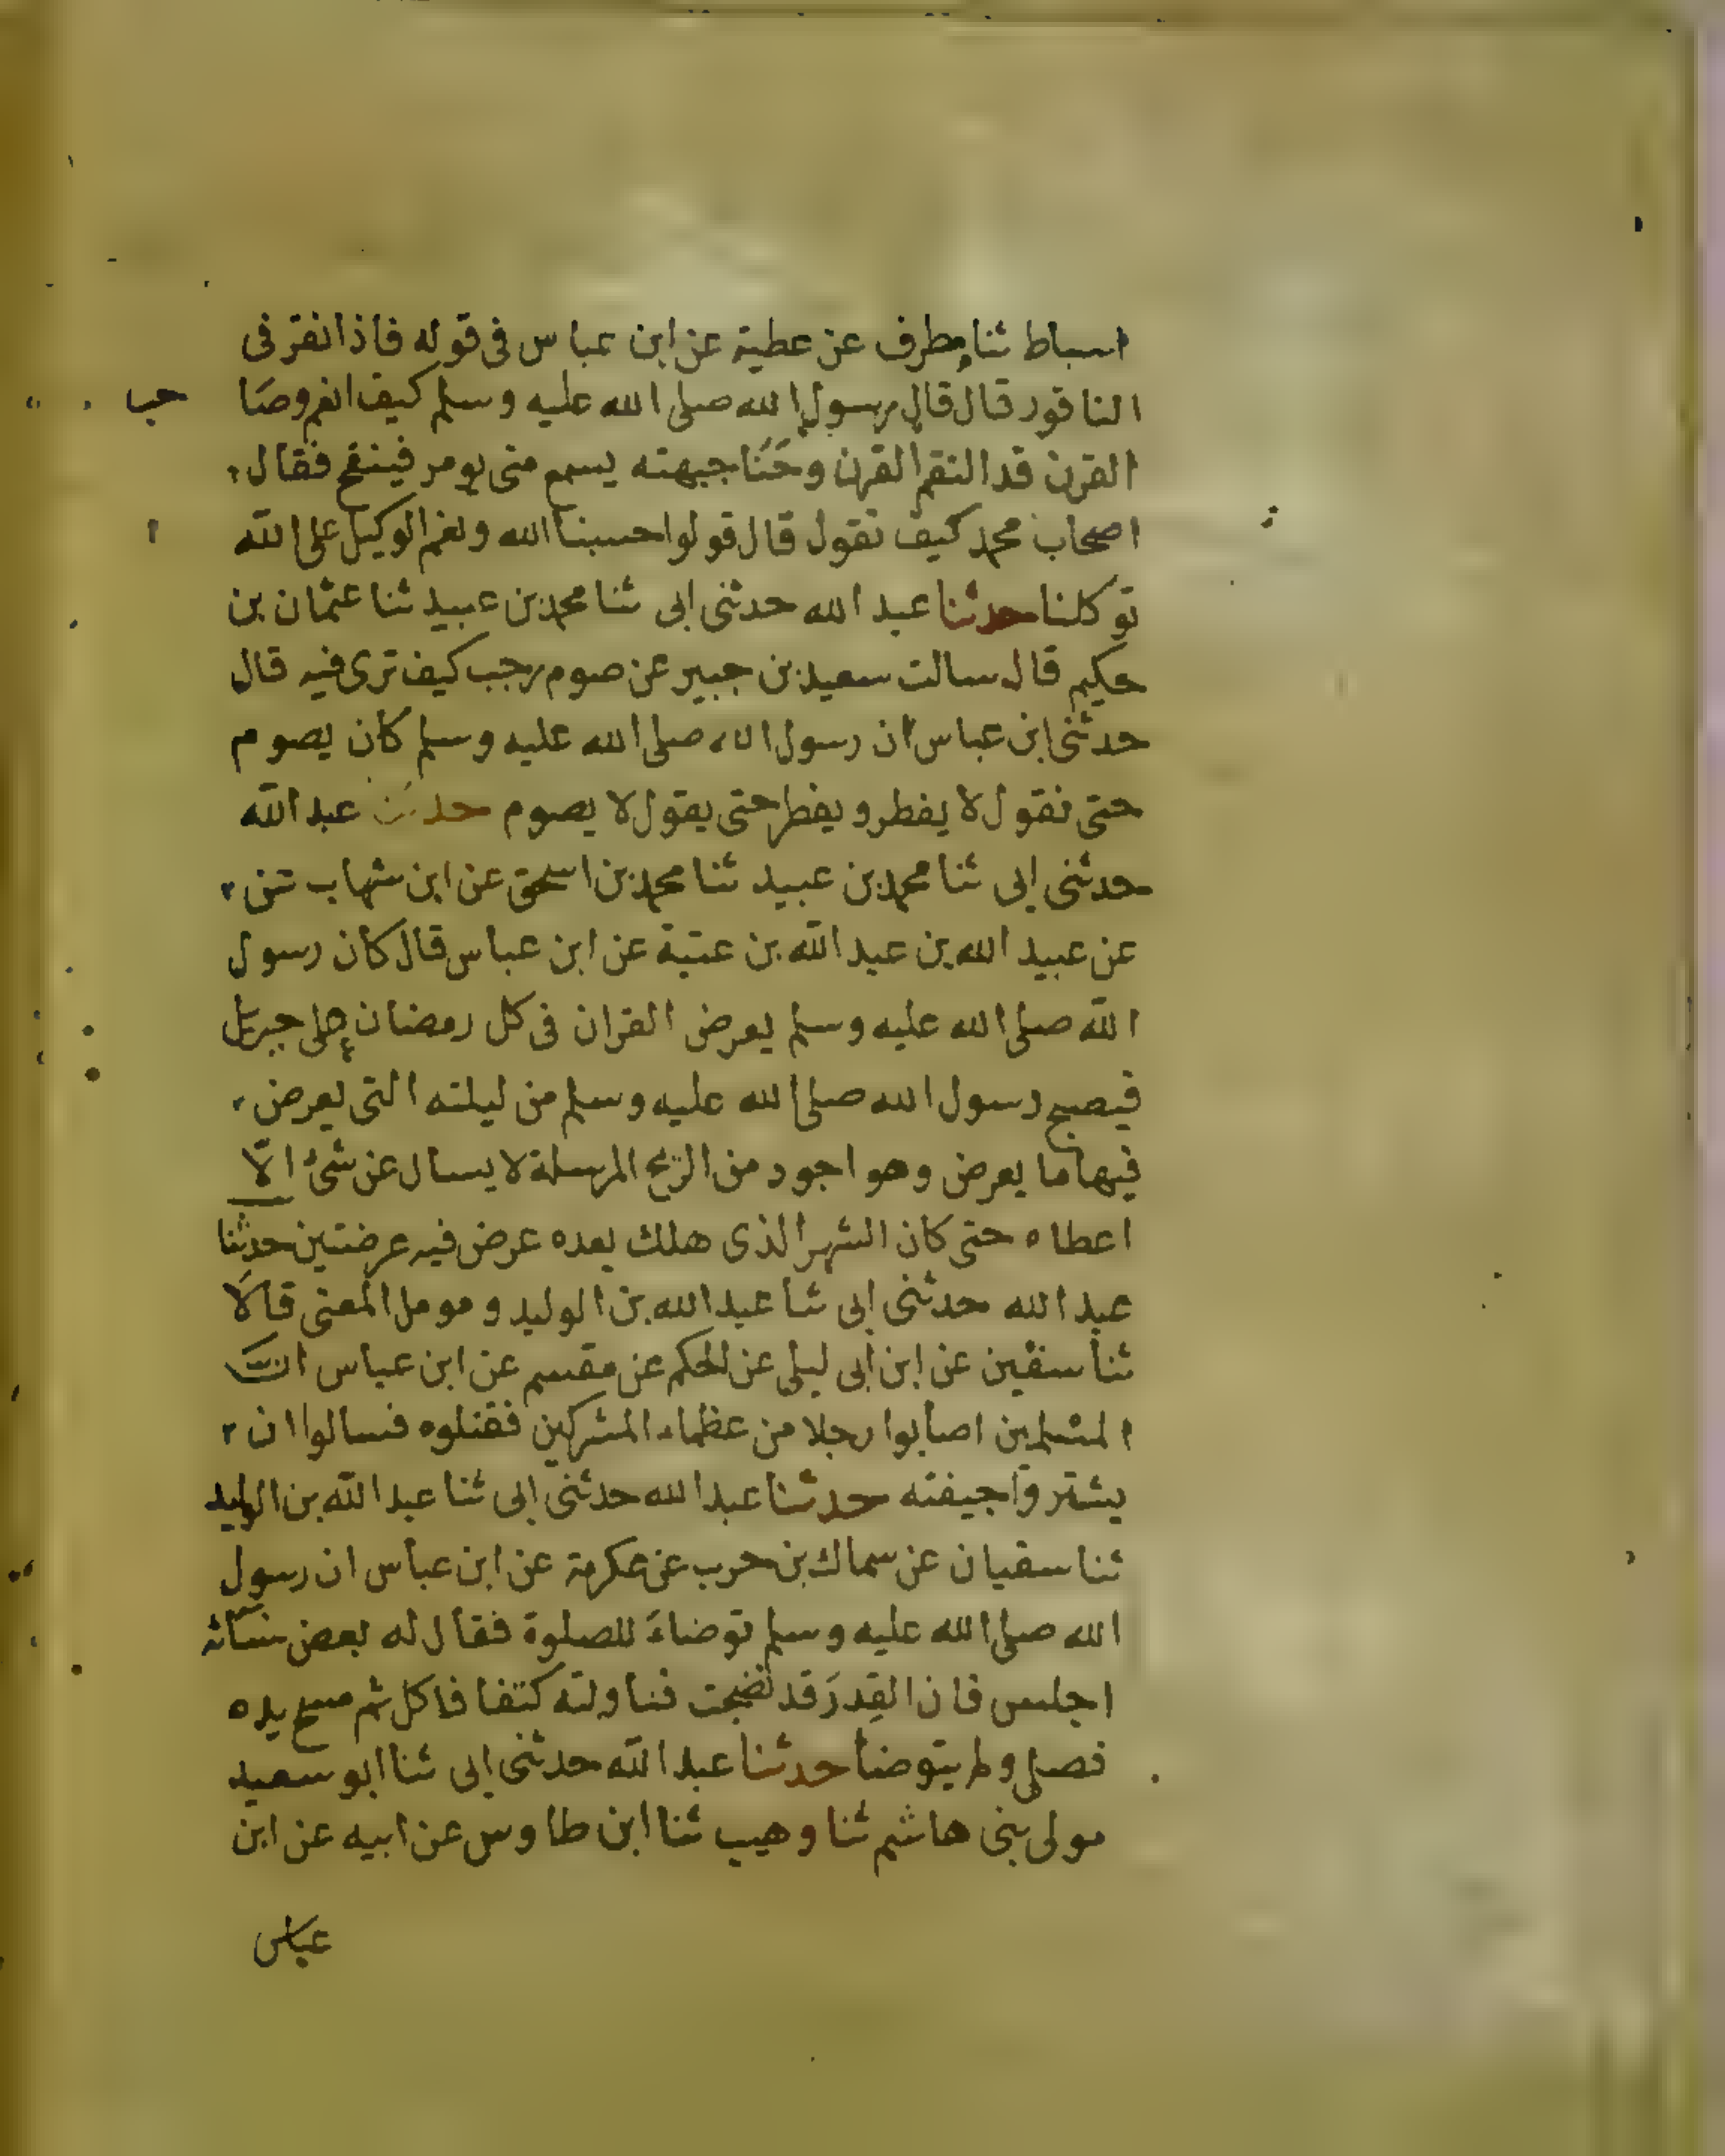 اسباط ثنا مطرف عن عطية عن ابن عباس فى قوله فاذا نقر فى
الناقور قال قال رسول الله صلى الله عليه وسلم كيف انعم وصَا
حب
القرن قد التقم القرن وحَنَا جبهته يسمع متى يومر فينفخ فقال
اصحاب محمد كيف نقول قال قولوا حسبنا الله ونعم الوكيل على الله
توكلنا حدثنا عبد الله حدثنى ابى ثنا محمد بن عبيد ثنا عثمان بن
حكيم قال سالت سعيد بن جبير عن صوم رجب كيف ترى فيه قال
حدثنى ابن عباس ان رسول الله صلى الله عليه وسلم كان يصوم
حتى نقول لا يفطر و يفطر حتى يقول لا يصوم حدثنا عبد الله
حدثنى ابى ثنا محمد بن عبيد ثنا محمد بن اسحق عن ابن شهاب
عن عبيد الله بن عبد الله بن عتبة عن ابن عباس قال كان رسول
الله صلى الله عليه وسلم يعرض القران فى كل رمضان على جبريل
فيصبح رسول الله صلى الله عليه وسلم من ليلته التى يعرض
فيها ما يعرض وهو اجود من الريح المرسلة لا يسال عن شئ الّا
اعطاه حتى كان الشهر الذى هلك بعده عرض فيه عرضتين حدثنا
عبد الله حدثنى ابى ثنا عبد الله بن الوليد و مومل المعنى قالَا
ثنا سفين عن ابن ابى ليلى عن الحكم عن مقسم عن ابن عباس ان
المسلمين اصابوا رجلا من عظماء المشركين فقتلوه فسالوا ان
يشتروا جيفته حدثنا عبد الله حدثنى ابى ثنا عبد الله بن الوليد
ثنا سفيان عن سماك بن حرب عن عكرمة عن ابن عباس ان رسول
الله صلى الله عليه وسلم توضاءَ للصلوة فقال له بعض نسائه
اجلس فان القِدرَ قد نضجت فناولته كتفا فاكل ثم مسح يده
فصلى ولم يتوضأ حدثنا عبد الله حدثنى ابى ثنا ابو سعيد
مولى بنى هاشم ثنا وهيب ثنا ابن طاوس عن ابيه عن ابن
عباس